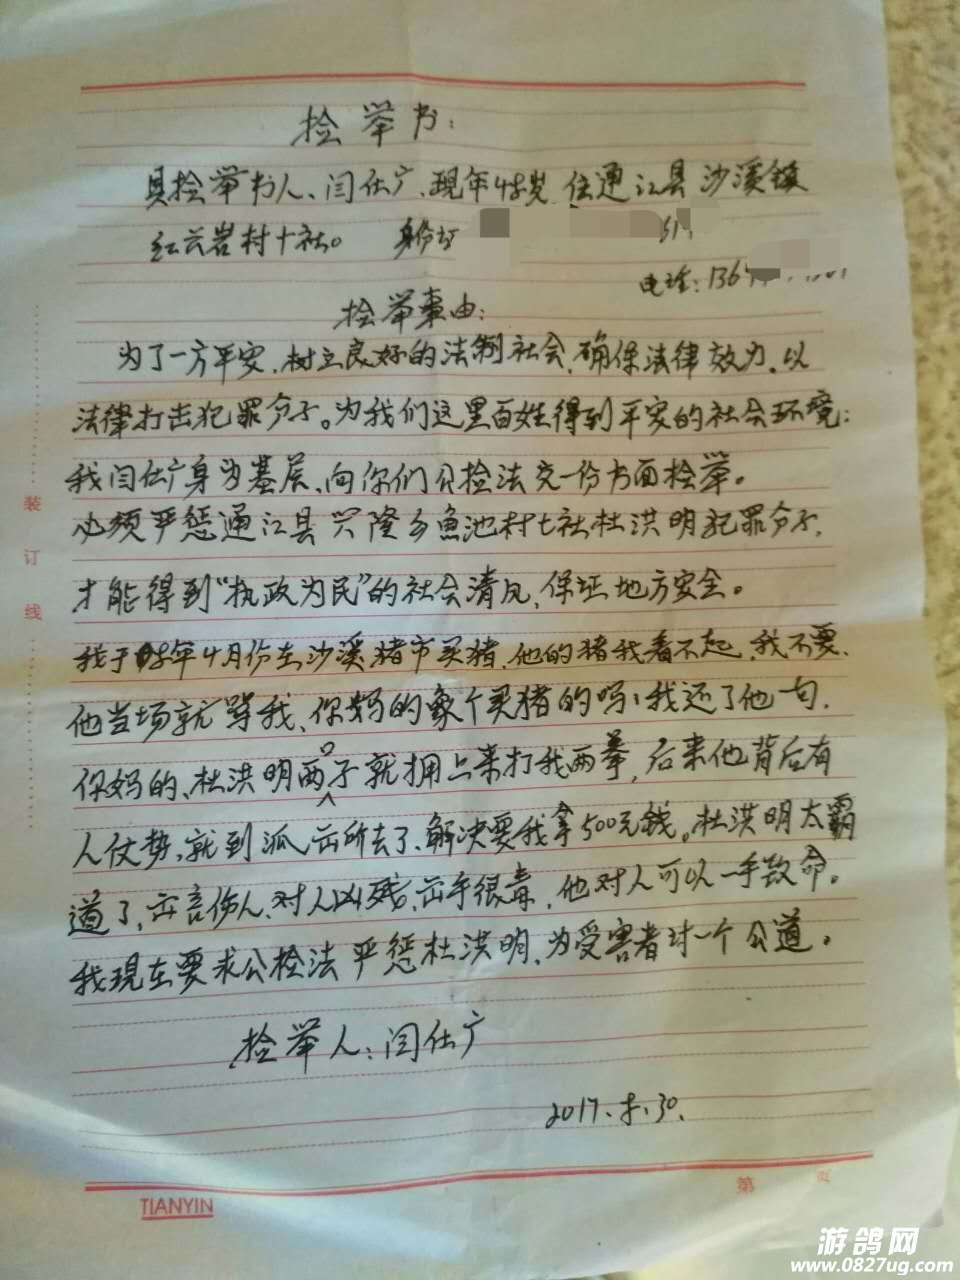 捡举书：
具捡举书人、闫仕广、现年48岁 住通江县沙溪镇
红云岩村十社。 身份证
电话：136
捡举事由：
为了一方平安，树立良好的法制社会，确保法律效力，以
法律打击犯罪分子。为我们这里百姓得到平安的社会环境：
我闫仕广身为基层、向你们公捡法交一份书面捡举。
必须严惩通江县兴隆乡鱼池村七社杜洪明犯罪分子，
才能得到“执政为民”的社会清风，保证地方安全。
我于 年4月份在沙溪猪市买猪，他的猪我看不起，我不要、
他当场就骂我、你妈的象个买猪的吗！我还了他一句，
你妈的、杜洪明两口子就拥上来打我两拳，后来他背后有
人仗势，就到派出所去了、解决要我拿500元钱。杜洪明太霸
道了，出言伤人、对人凶残，出手很毒，他对人可以一手致命。
我现在要求公检法严惩杜洪明，为受害者讨一个公道。
捡举人：闫仕广
2017.5.30.
装订线
第 页
TIANYIN
游鸽网
www.0827ug.com